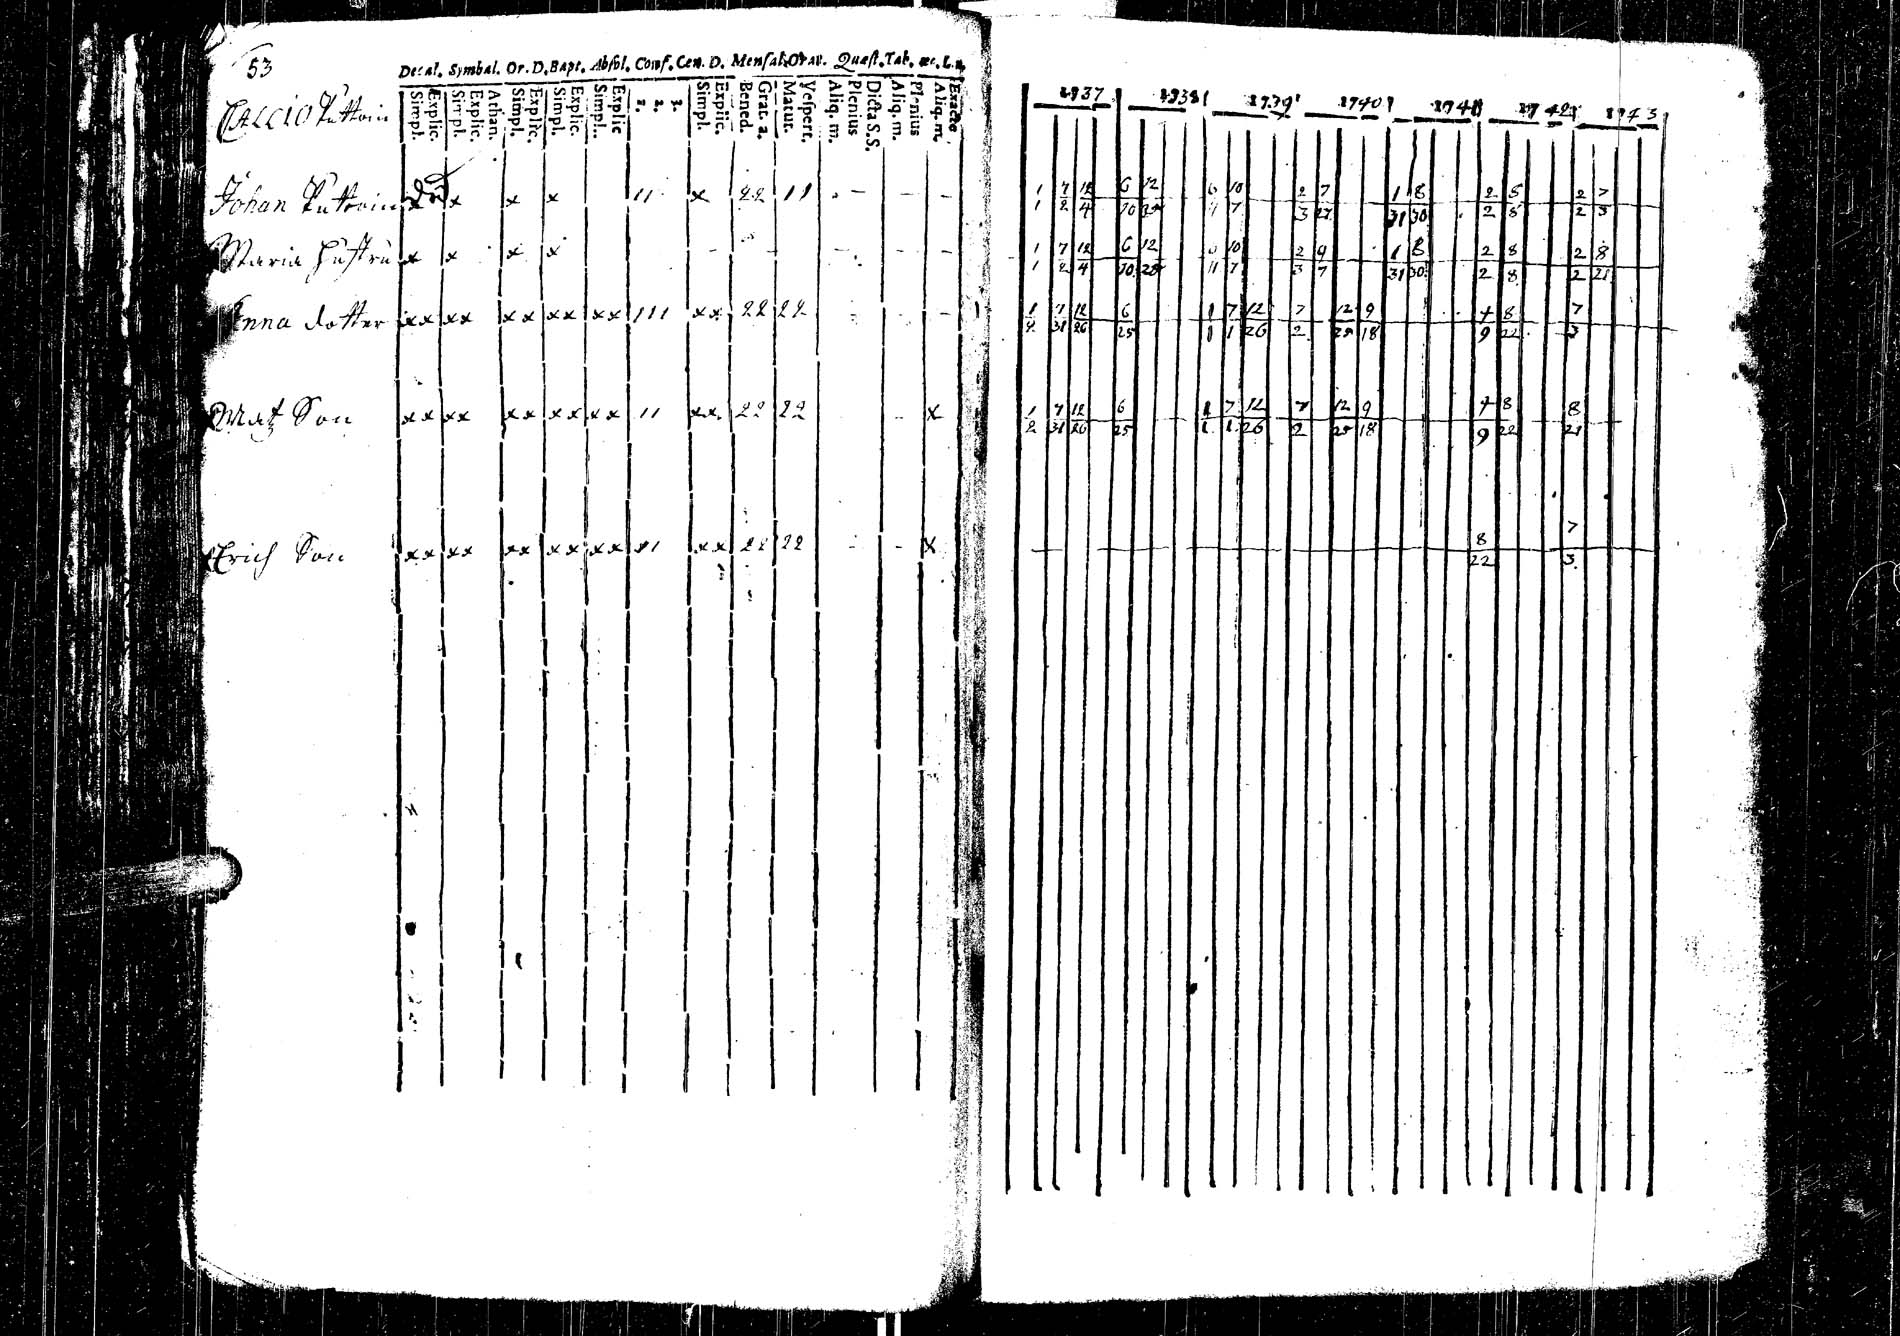 53
Decal. Symbal. Or. D. Bapt. Absol. Conf. Cœn. D. Mensal. Orav. Quæst. Tab. œc. L. n.
Simpl. Explic. Simpl. Explic. Athan. Simpl. Explic. Simpl. Explic. Simpl. Explic 1. 2. 3. Simpl. Explic. Bened. Grat. a. Matut. Vespert. Aliq. m. Plenius Dicta S.S. Aliq. m. Plenius Aliq. m. Exacte
1737 1738 1739 1740 1741 1742 1743
Johan x x x x 11 x 22 11
1 7 12 6 12 6 10 2 7 1 8 2 8 2 7
1 2 4 10 4 7 3 27 31 30 2 8 2 3
Maria Hustru x x x x
1 7 12 6 12 10 2 9 1 8 2 8 2 8
1 2 4 10 28 11 7 3 7 31 30 2 8 2 21
Anna dotter xx xx xx xx xx 111 xx 22 22
1 7 12 6 1 7 12 7 12 9 7 8 7
2 31 26 25 1 1 26 2 25 18 9 22 3
Matz Son xx xx xx xx xx 11 xx 22 22 x
1 7 12 6 1 7 12 7 12 9 7 8 8
2 31 26 25 1 1 26 2 25 18 9 22 21
Erich Son xx xx xx xx xx 11 xx 22 22 x
8 7
22 3